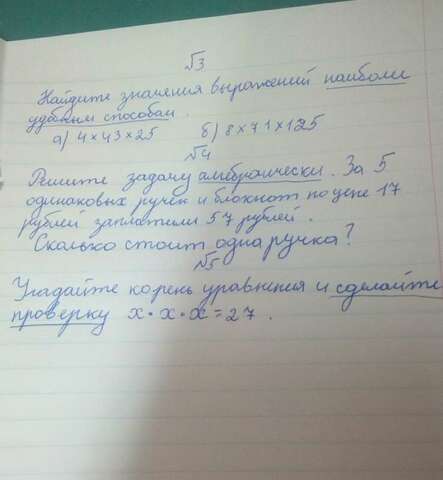 №3
Найдите значения выражений наиболи
удобным способам.
а) 4×43×25 б) 8×71×125
№4
Решите задачу алгебраически. За 5
одинаковых ручек и блокнот по цене 17
рублей заплатили 57 рублей.
Сколько стоит одна ручка?
№5
Угадайте корень уравнения и сделайте
проверку x·x·x=27.